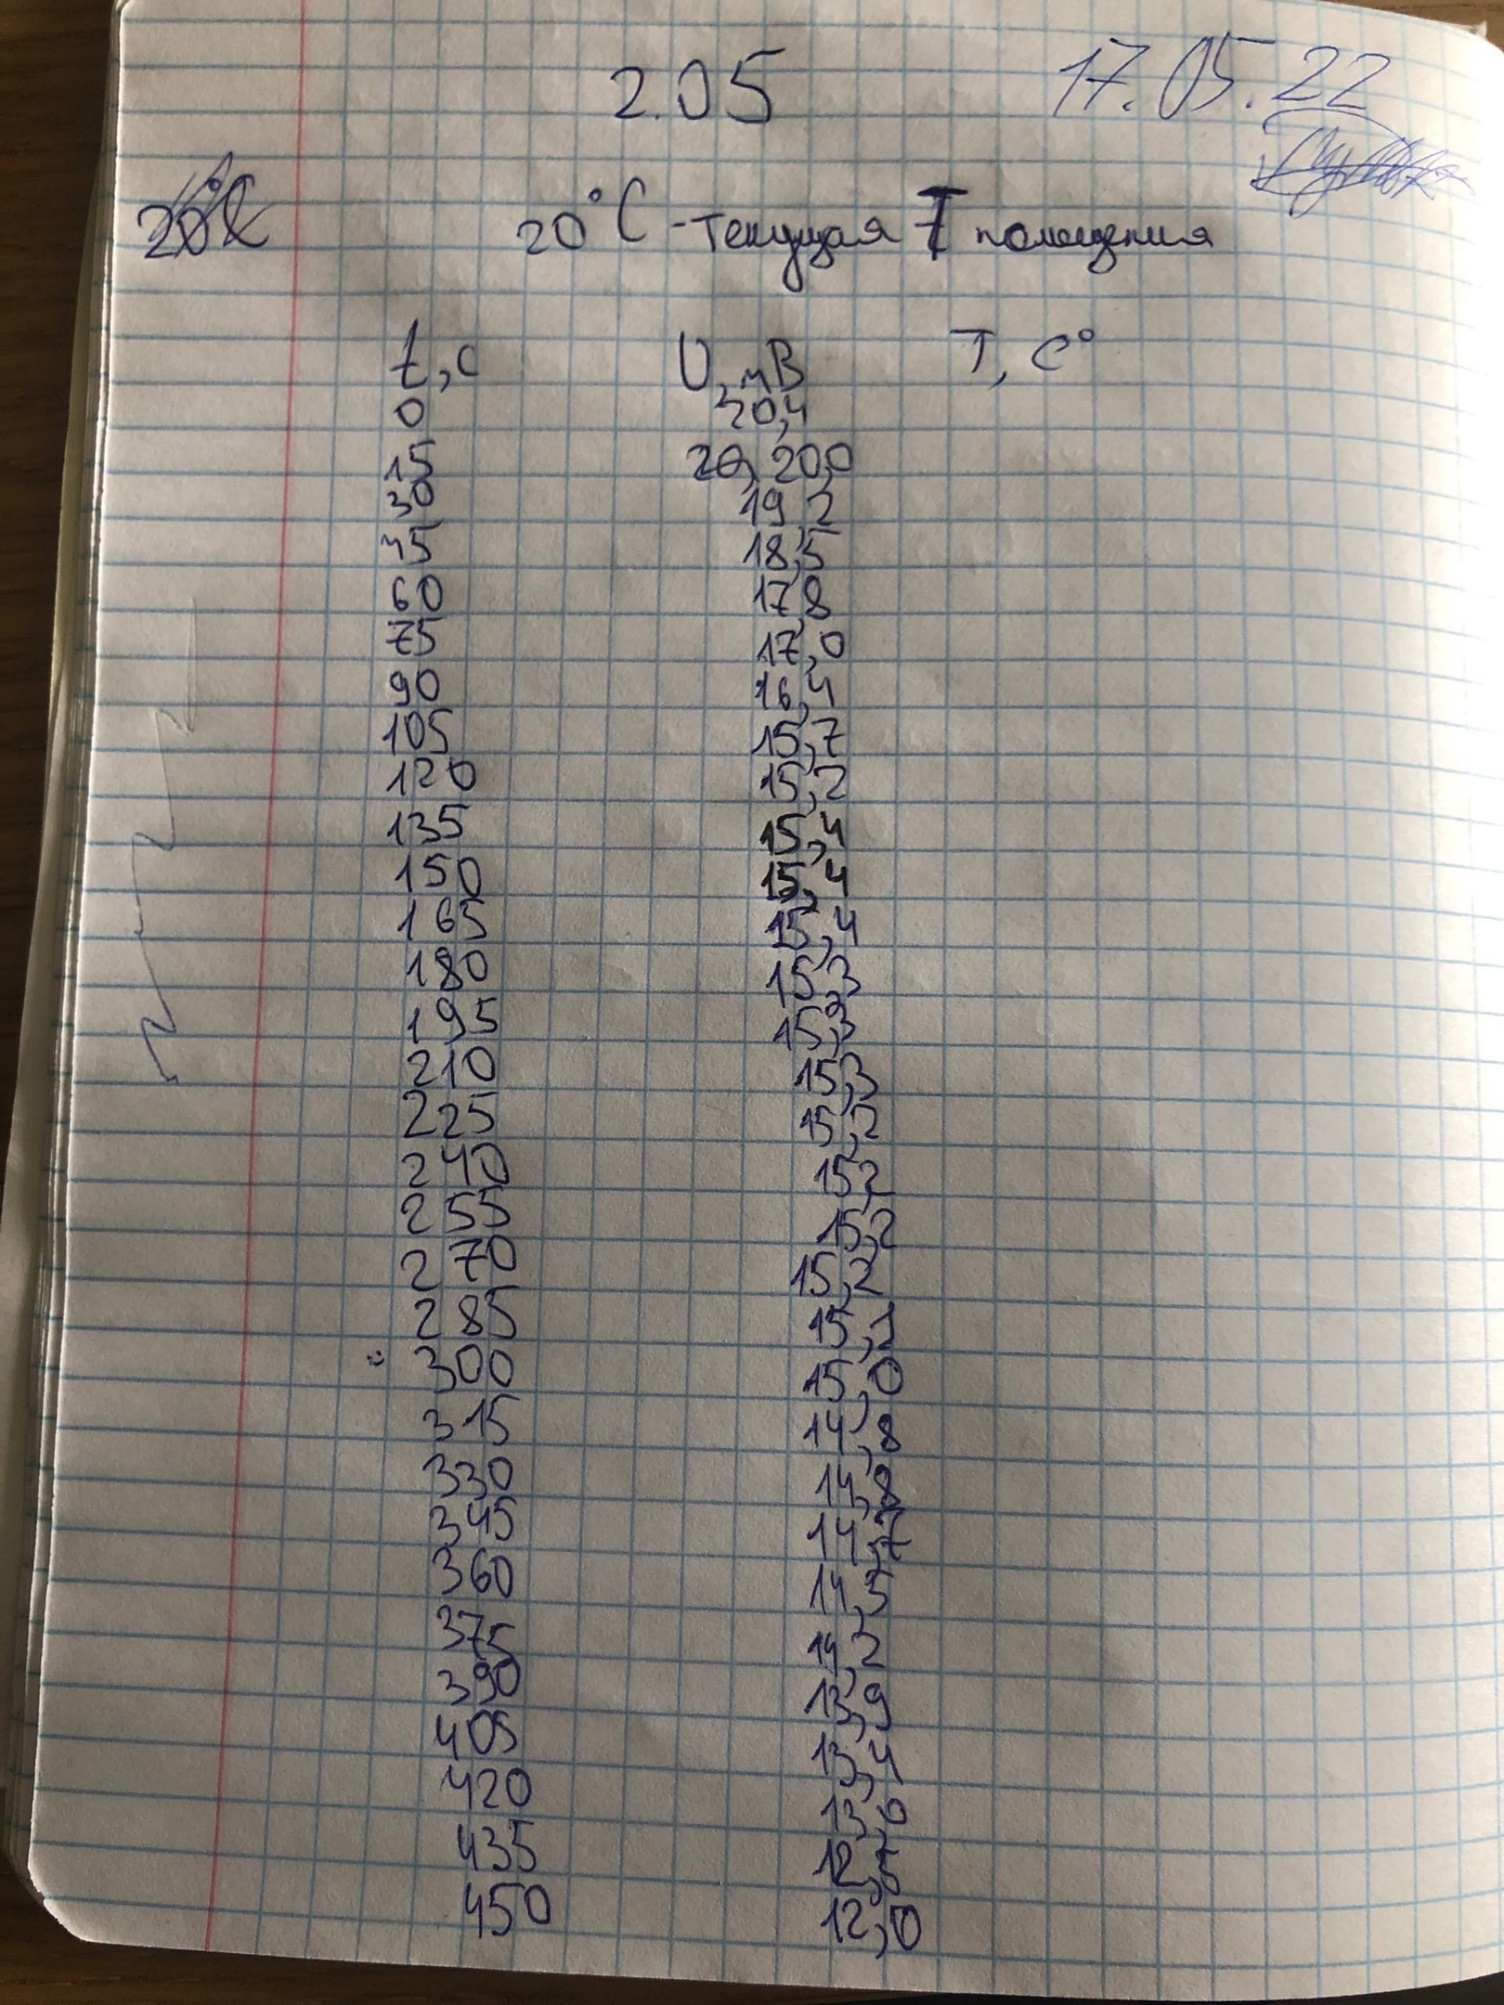 2.05 17.05.22
20°C - текущая T помещения
t, c U, мВ T, C°
0 20,4
15 20,0
30 19,2
35 18,5
60 17,8
75 17,0
90 16,4
105 15,7
120 15,2
135 15,4
150 15,4
165 15,4
180 15,3
195 15,3
210 15,3
225 15,2
240 15,2
255 15,2
270 15,2
285 15,1
300 15,0
315 14,8
330 14,8
345 14,7
360 14,5
375 14,2
390 13,9
405 13,4
420
435
450 12,0